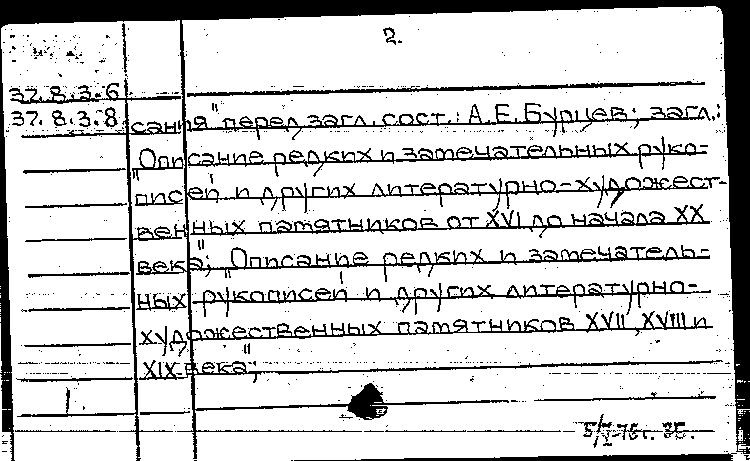 2.
37.8.3.6
37.8.3.8. сания" перед загл. сост.: А.Е.Бурцев; загл.:
"Описание редких и замечательных руко-
писей и других литературно-художест-
венных памятников от XVI до начала XX
века"; "Описание редких и замечатель-
ных рукописей и других литературно-
художественных памятников XVII, XVIII и
XIX века";